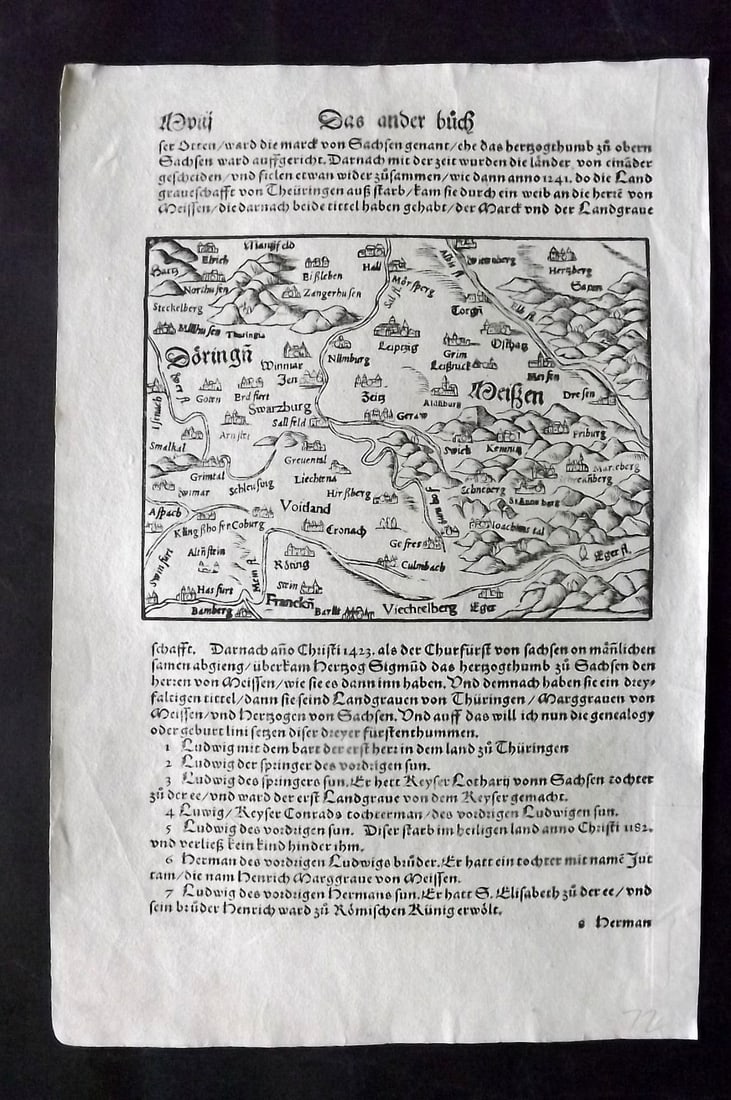 Das ander bůch
ser Otten/ward die marck von Sachsen genant/ehe das hertzogthumb zů obern
Sachsen ward auffgericht. Darnach mit der zeit wurden die länder von einäder
gescheiden/vnd fielen etwan wider zůsammen/wie dann anno 1241. do die Land
graueschafft von Theüringen auß starb/kam sie durch ein weib an die herrē von
Meissen/die darnach beide tittel haben gehabt/der Marck vnd der Landgraue
Elrich
Manßfeld
Hall
Hertzberg
Hartz
Eißleben
Mörsperg
Northusen
Zangerhusen
Sal fl.
Torgū
Steckelberg
Leiptzig
Oschatz
Grim
Thuringia
Döringū
Winmar
Nümburg
Leißnick
Meissen
Jen
Zeitz
Dresen
Goten
Erdfurt
Swarzburg
Altēburg
Salfeld
Geraw
Friburg
Arnstet
Smalkal
Greuental
Swick
Kemnitz
Grimtal
Schleusing
Liechtena
Hirßberg
Schneberg
S. Anneberg
Aspach
Voitland
Ioachimstal
Klingßhofer
Coburg
Cronach
Gefres
Eger fl.
Altēstein
Röting
Culmbach
Swinfurt
Hasfurt
Mein fl.
Stein
Franckē
Bamberg
Viechtelberg
Eger
schafft. Darnach año Christi 1423. als der Churfürst von sachsen on mäñlichen
samen abgieng/überkam Hertzog Sigmūd das hertzogthumb zů Sachsen den
herren von Meissen/wie sie es dann inn haben. Vnd demnach haben sie ein drey-
faltigen tittel/dann sie seind Landgrauen von Thüringen/Marggrauen von
Meissen/vnd Hertzogen von Sachsen. Vnd auff das will ich nun die genealogy
oder geburt lini setzen diser dreyer fürstenthummen.
1 Ludwig mit dem bart der erst herr in dem land zů Thüringen
2 Ludwig der springer des vordrigen sun.
3 Ludwig des springers sun. Er hett Keyser Lotharij vonn Sachsen tochter
zů der ee/vnd ward der erst Landgraue von dem Keyser gemacht.
4 Luwig/Keyser Conrads tochterman/des vordrigen Ludwigen sun.
5 Ludwig des vordrigen sun. Diser starb im heiligen land anno Christi 1182.
vnd verließ kein kind hinder ihm.
6 Herman des vordrigen Ludwigs brůder. Er hatt ein tochter mit namē Jut
tam/die nam Henrich Marggraue von Meissen.
7 Ludwig des vordrigen Hermans sun. Er hatt S. Elisabeth zů der ee/vnd
sein brůder Henrich ward zů Römischen Künig erwölt.
8 Herman
72